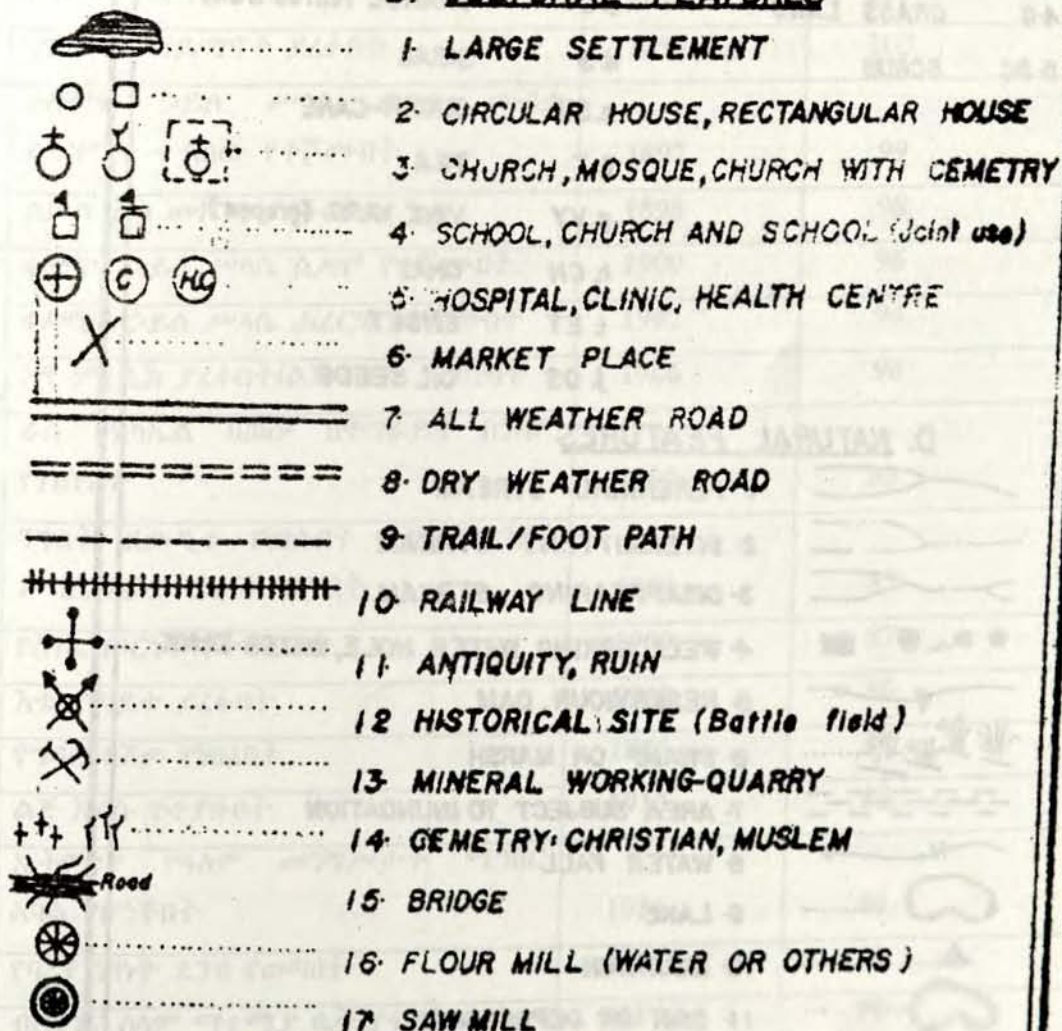 1. LARGE SETTLEMENT
2. CIRCULAR HOUSE, RECTANGULAR HOUSE
3. CHURCH, MOSQUE, CHURCH WITH CEMETRY
4. SCHOOL, CHURCH AND SCHOOL (Joint use)
C HC
5. HOSPITAL, CLINIC, HEALTH CENTRE
6. MARKET PLACE
7. ALL WEATHER ROAD
8. DRY WEATHER ROAD
9. TRAIL/FOOT PATH
10. RAILWAY LINE
11. ANTIQUITY, RUIN
12. HISTORICAL SITE (Battle field)
13. MINERAL WORKING-QUARRY
14. CEMETRY: CHRISTIAN, MUSLEM
Road
15. BRIDGE
16. FLOUR MILL (WATER OR OTHERS)
17. SAW MILL